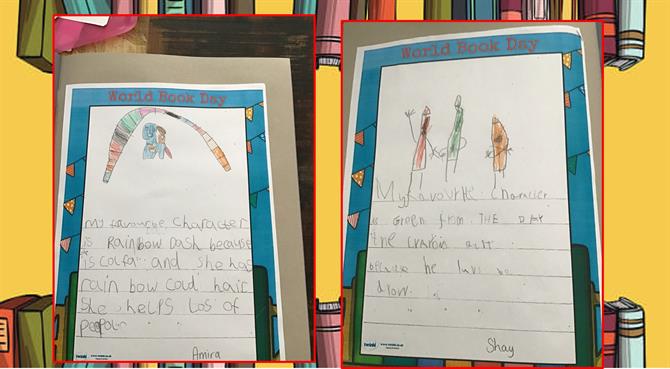 World Book Day
My favourite Character
is RAINBOW DASh because
is COLFa and she has
rain bow cold hair
She helps los of
pepol
Amira
twinkl
World Book Day
My favourite Character
is Green from THE DAY
the crarbis
he
drow
Shay
twinkl